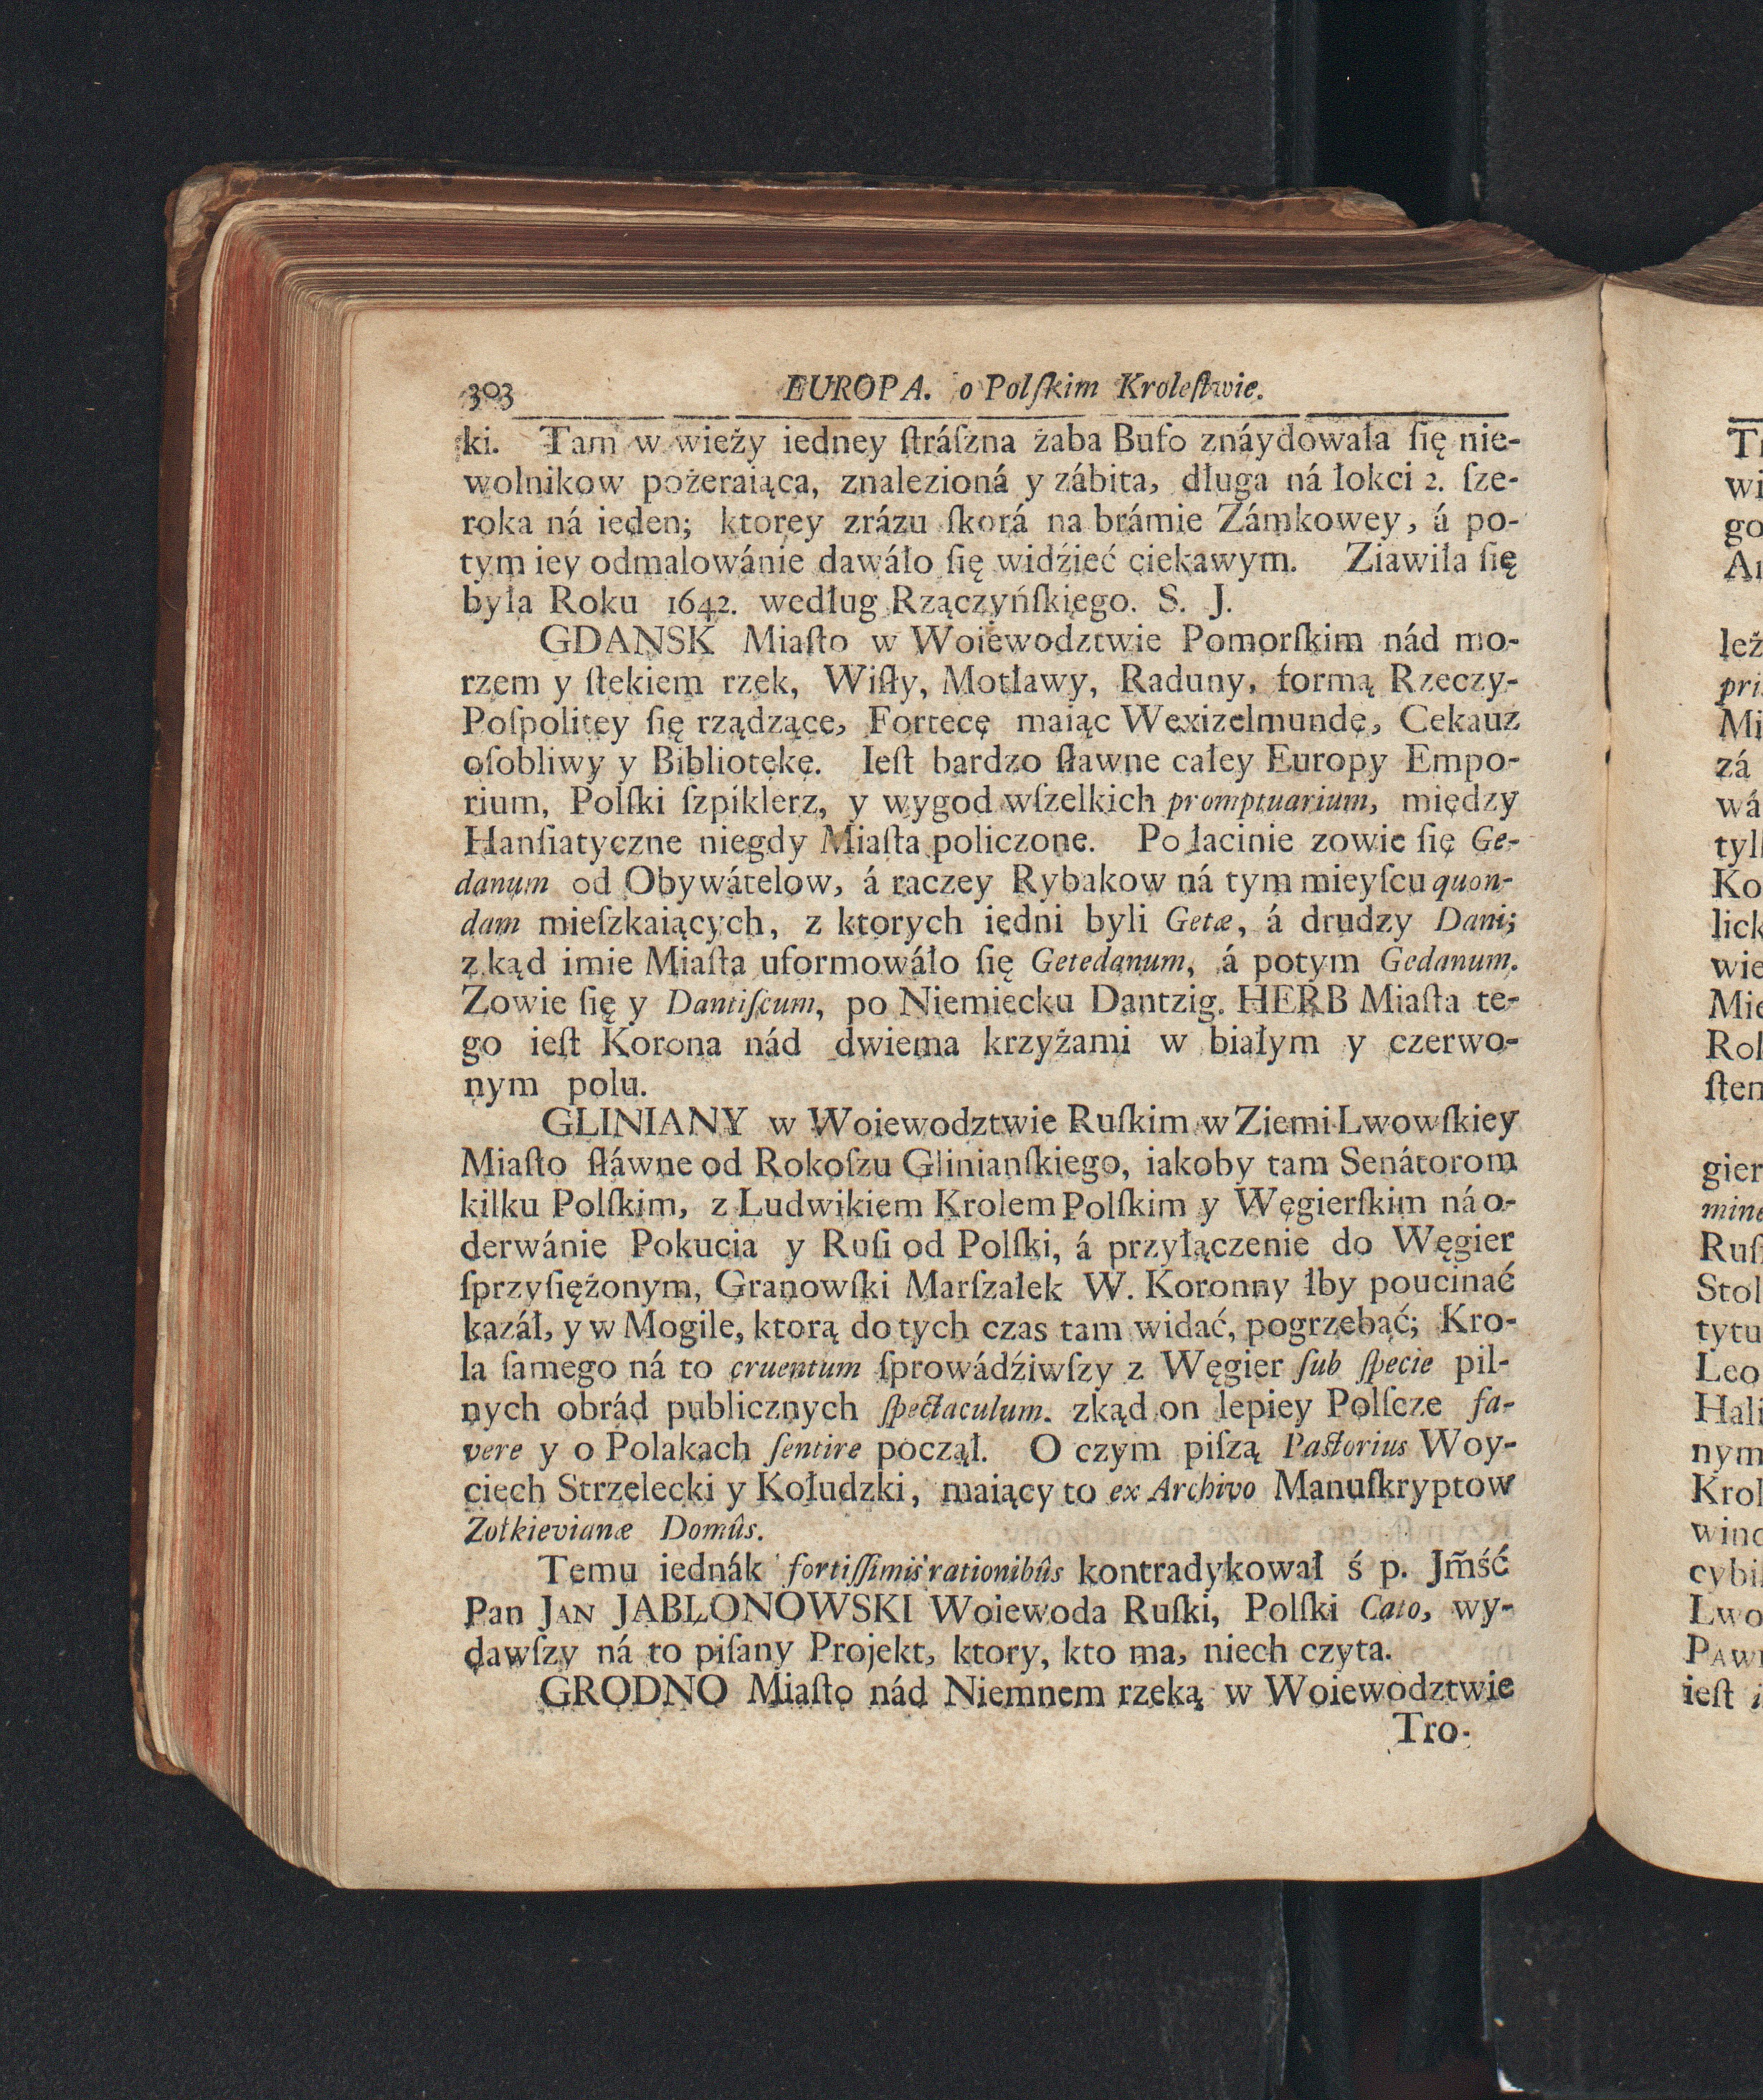 303 EUROPA. o Polſkim Kroleſtwie.
ki. Tam w wieży iedney ſtráſzna żaba Bufo znáydowała ſię nie-
wolnikow pożeraiąca, znalezioná y zábita, długa ná łokci 2. ſze-
roka ná ieden; ktorey zrázu ſkorá na brámie Zámkowey, á po-
tym iey odmalowánie dawáło ſię widźieć ciekawym. Ziawiła ſię
była Roku 1642. według Rzączyńſkiego. S. J.
GDANSK Miaſto w Woiewodztwie Pomorſkim nád mo-
rzem y ſtekiem rzek, Wiſły, Motławy, Raduny, formą Rzeczy-
Poſpolitey ſię rządzące, Fortecę maiąc Wexizelmundę, Cekauz
oſobliwy y Bibliotekę. Ieſt bardzo ſławne całey Europy Empo-
rium, Polſki ſzpiklerz, y wygod wſzelkich promptuarium, między
Hanſiatyczne niegdy Miaſta policzone. Po łacinie zowie ſię Ge-
danum od Obywátelow, á raczey Rybakow ná tym mieyſcu quon-
dam mieſzkaiących, z ktorych iedni byli Getæ, á drudzy Dani;
zkąd imie Miaſta uformowáło ſię Getedanum, á potym Gedanum.
Zowie ſię y Dantiſcum, po Niemiecku Dantzig. HERB Miaſta te-
go ieſt Korona nád dwiema krzyżami w białym y czerwo-
nym polu.
GLINIANY w Woiewodztwie Ruſkim w Ziemi Lwowſkiey
Miaſto ſłáwne od Rokoſzu Glinianſkiego, iakoby tam Senátorom
kilku Polſkim, z Ludwikiem Krolem Polſkim y Węgierſkim ná o-
derwánie Pokucia y Ruſi od Polſki, á przyłączenie do Węgier
ſprzyſiężonym, Granowſki Marſzałek W. Koronny łby poucinać
kazáł, y w Mogile, ktorą do tych czas tam widać, pogrzebąć; Kro-
la ſamego ná to cruentum ſprowádźiwſzy z Węgier ſub ſpecie pil-
nych obrád publicznych ſpectaculum. zkąd on lepiey Polſcze fa-
vere y o Polakach ſentire począł. O czym piſzą Paſtorius Woy-
ciech Strzelecki y Kołudzki, maiący to ex Archivo Manuſkryptow
Zołkievianæ Domûs.
Temu iednák fortiſſimis rationibûs kontradykował ś p. Jm̃ść
Pan JAN JABLONOWSKI Woiewoda Ruſki, Polſki Cato, wy-
dawſzy ná to piſany Projekt, ktory, kto ma, niech czyta.
GRODNO Miaſto nád Niemnem rzeką w Woiewodztwie
Tro-
wi
go
leż
pri
Mi
zá
wá
tyl
Ko
lick
wie
Mie
Rol
ſten
gier
mine
Ruſ
Stol
tytu
Leo
Hali
nym
Krol
winc
cybi
Lwo
PAW
ieſt i